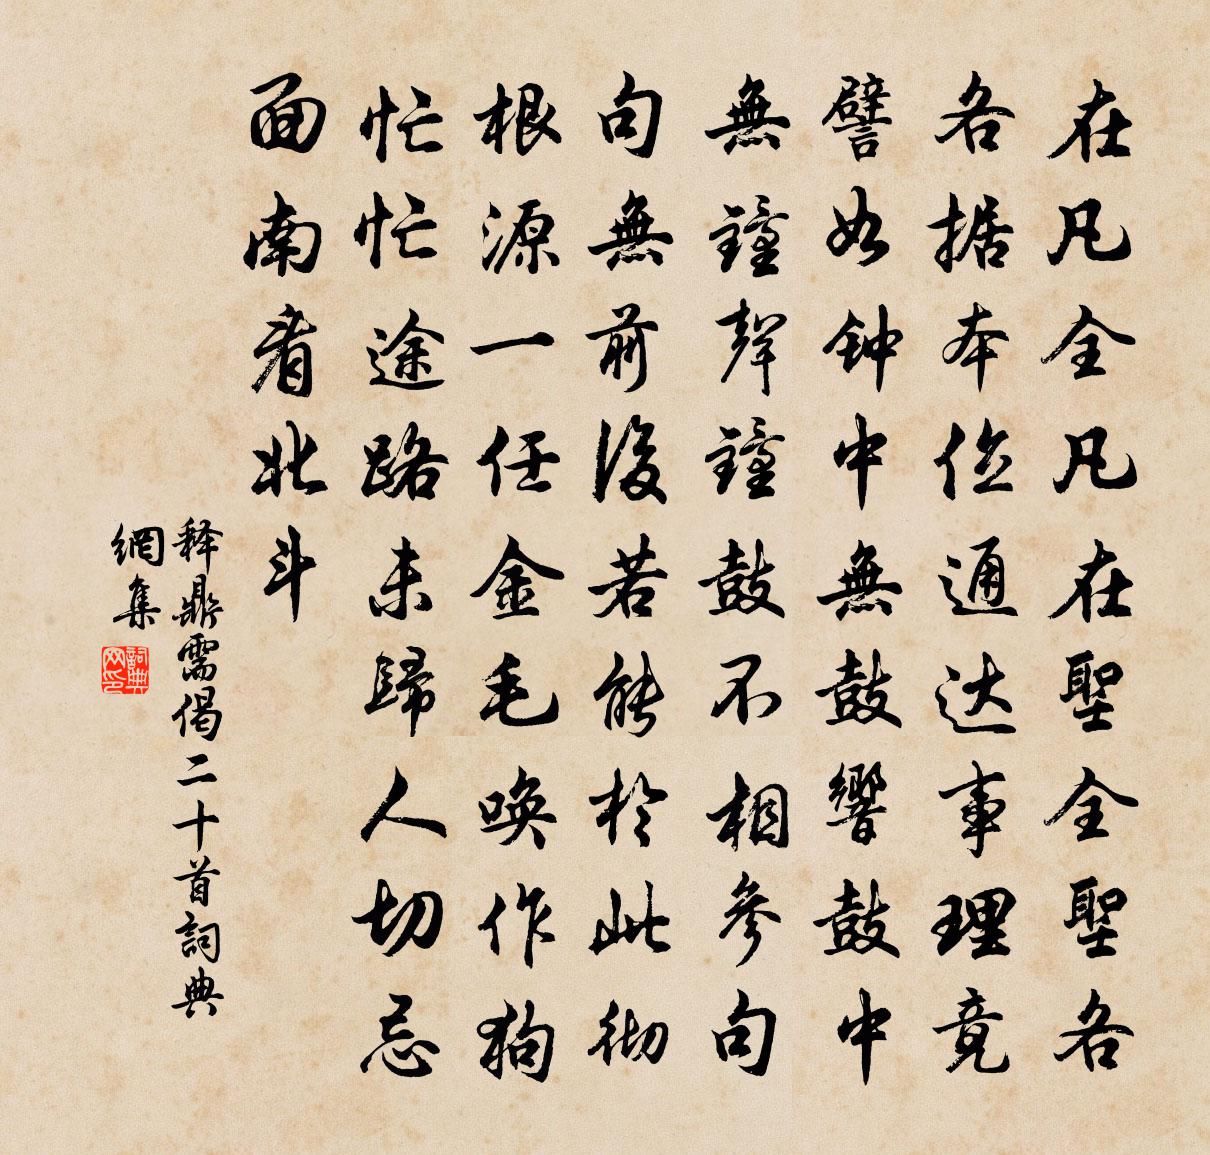 在凡全凡在聖全聖各
各据本位通达事理竟
譬如钟中無鼓響鼓中
無鐘聲鐘鼓不相參句
句無前後若能於此彻
根源一任金毛唤作狗
忙忙途路未歸人切忌
面南看北斗
释鼎需偈二十首詞典
網集
詞典网印